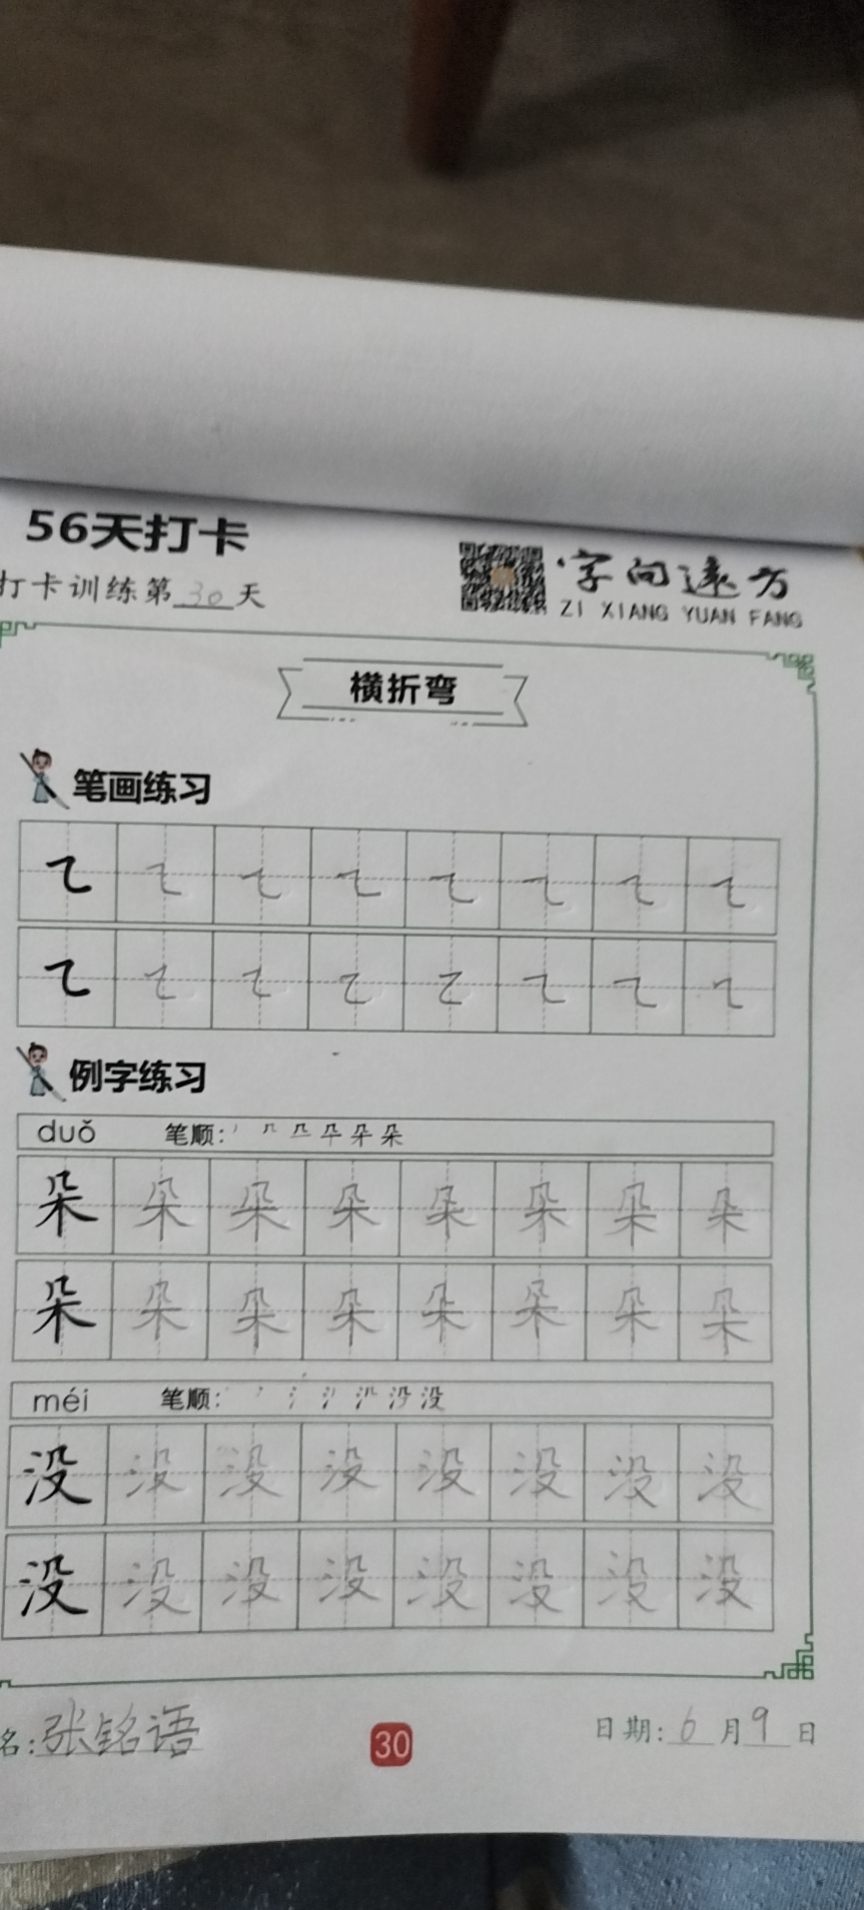 56天打卡
打卡训练第30天
字向远方
ZI XIANG YUAN FANG
横折弯
笔画练习
例字练习
duǒ 笔顺: 朵
朵 朵 朵 朵 朵 朵 朵 朵
朵 朵 朵 朵 朵 朵 朵 朵
méi 笔顺: 没
没 没 没 没 没 没 没 没
没 没 没 没 没 没 没 没
名:张铭语
30
日期:6月9日